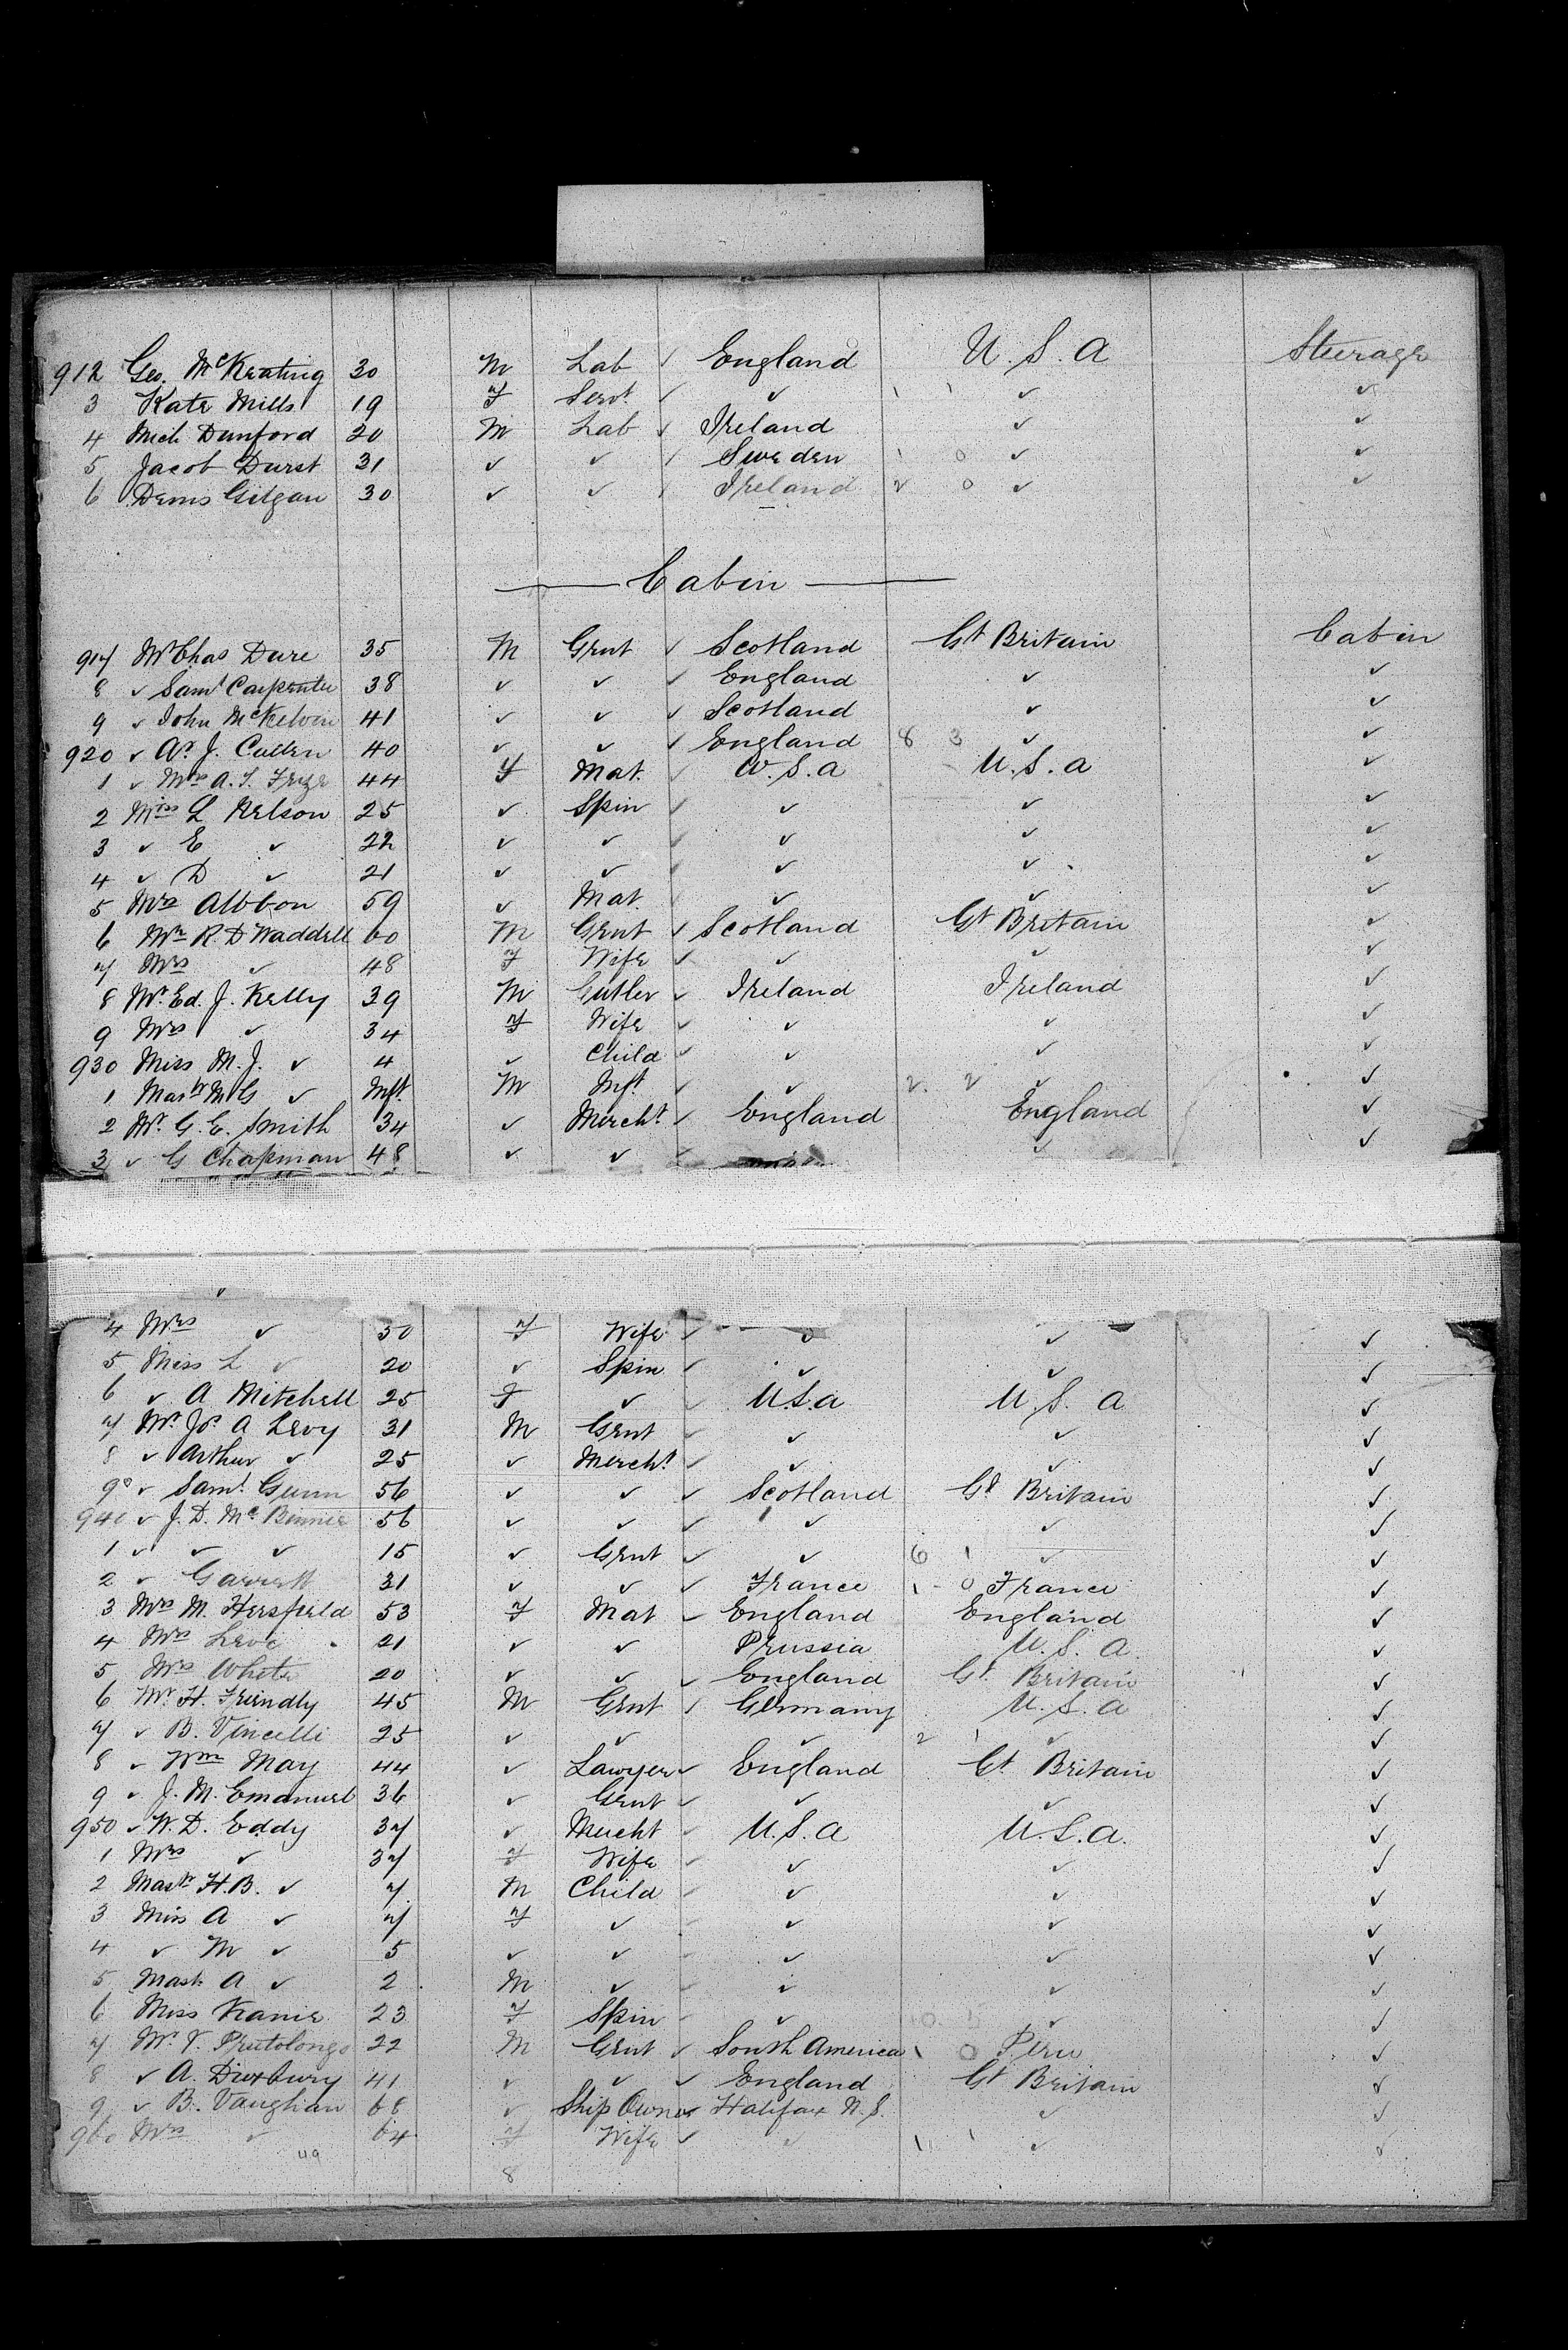 912 Geo. McKeating 30 M Lab ✓ England U.S.A Steerage
3 Kate Mills 19 F Servt ✓ ✓ 1 1 ✓ ✓
4 Mich Dunford 20 M Lab ✓ Ireland ✓ ✓
5 Jacob Durst 31 ✓ ✓ ✓ Sweden 1 0 ✓ ✓
6 Denis Gilgan 30 ✓ ✓ ✓ Ireland 2 0 ✓ ✓
— Cabin —
917 Mr Chas Dure 35 M Gent ✓ Scotland Gt Britain Cabin
8 ✓ Saml Carpenter 38 ✓ ✓ ✓ England ✓ ✓
9 ✓ John McKelvin 41 ✓ ✓ ✓ Scotland ✓ ✓
920 ✓ J. Cullen 40 ✓ ✓ ✓ England 8 3 ✓ ✓
1 ✓ Mrs A. 44 F Mat. ✓ U.S.A U.S.A ✓
2 Miss L Nelson 25 ✓ Spin ✓ ✓ ✓ ✓
3 ✓ E ✓ 22 ✓ ✓ ✓ ✓ ✓ ✓
4 ✓ D ✓ 21 ✓ ✓ ✓ ✓ ✓ ✓
5 Mrs Albbon 59 ✓ Mat. ✓ ✓ ✓
6 Mr R. D Waddell 60 M Gent ✓ Scotland Gt Britain ✓
7 Mrs ✓ 48 F Wife ✓ ✓ ✓ ✓
8 Mr Ed. J. Kelly 39 M Cutler ✓ Ireland Ireland ✓
9 Mrs ✓ 34 F Wife ✓ ✓ ✓ ✓
930 Miss M. J. ✓ 4 ✓ Child ✓ ✓ ✓ ✓
1 Mastr M G ✓ Inft. M Inft ✓ ✓ 2 2 ✓ ✓
2 Mr. G. E. Smith 34 ✓ Mercht ✓ England England ✓
3 ✓ G Chapman 48 ✓ ✓ ✓ ✓ ✓
4 Mrs ✓ 50 F Wife ✓ ✓ ✓ ✓
5 Miss L ✓ 20 ✓ Spin ✓ ✓ ✓ ✓
6 ✓ A Mitchell 25 F ✓ ✓ U.S.A U.S.A ✓
7 Mr. Js. A Levy 31 M Gent ✓ ✓ ✓ ✓
8 ✓ Arthur ✓ 25 ✓ Mercht ✓ ✓ ✓ ✓
9 ✓ Saml Gunn 56 ✓ ✓ ✓ Scotland Gt Britain ✓
940 ✓ J. D. Mc Binnie 56 ✓ ✓ ✓ ✓ ✓ ✓
1 ✓ ✓ ✓ 15 ✓ Gent ✓ ✓ 6 1 ✓ ✓
2 ✓ Garrett 31 ✓ ✓ ✓ France 1 - 0 France ✓
3 Mrs M. Hersfield 53 F Mat ✓ England England ✓
4 Mrs Leve 21 ✓ ✓ Prussia U.S.A. ✓
5 Mrs White 20 ✓ ✓ ✓ England Gt Britain ✓
6 Mr H. Friendly 45 M Gent ✓ Germany U.S.A ✓
7 ✓ B. Vincelli 25 ✓ ✓ ✓ 2 1 ✓ ✓
8 ✓ Wm May 44 ✓ Lawyer ✓ England Gt Britain ✓
9 ✓ J. M. Emanuel 36 ✓ Gent ✓ ✓ ✓ ✓
950 ✓ W. D. Eddy 37 ✓ Mercht ✓ U.S.A U.S.A. ✓
1 Mrs ✓ 37 F Wife ✓ ✓ ✓ ✓
2 Mastr H.B. ✓ 7 M Child ✓ ✓ ✓ ✓
3 Miss A ✓ 7 F ✓ ✓ ✓ ✓ ✓
4 ✓ M ✓ 5 ✓ ✓ ✓ ✓ ✓ ✓
5 Mastr A ✓ 2 M ✓ ✓ ✓ ✓ ✓
6 Miss Kanie 23 F Spin ✓ ✓ 10 5 ✓ ✓
7 Mr V. Prutolongo 22 M Gent ✓ South America 1 0 Peru ✓
8 ✓ A. Duxbury 41 ✓ ✓ ✓ England Gt Britain ✓
9 ✓ B. Vaughan 68 ✓ Ship Owner Halifax N.S. ✓ ✓
960 Mrs ✓ 64 F Wife ✓ ✓ 11 1 ✓ ✓
49 8